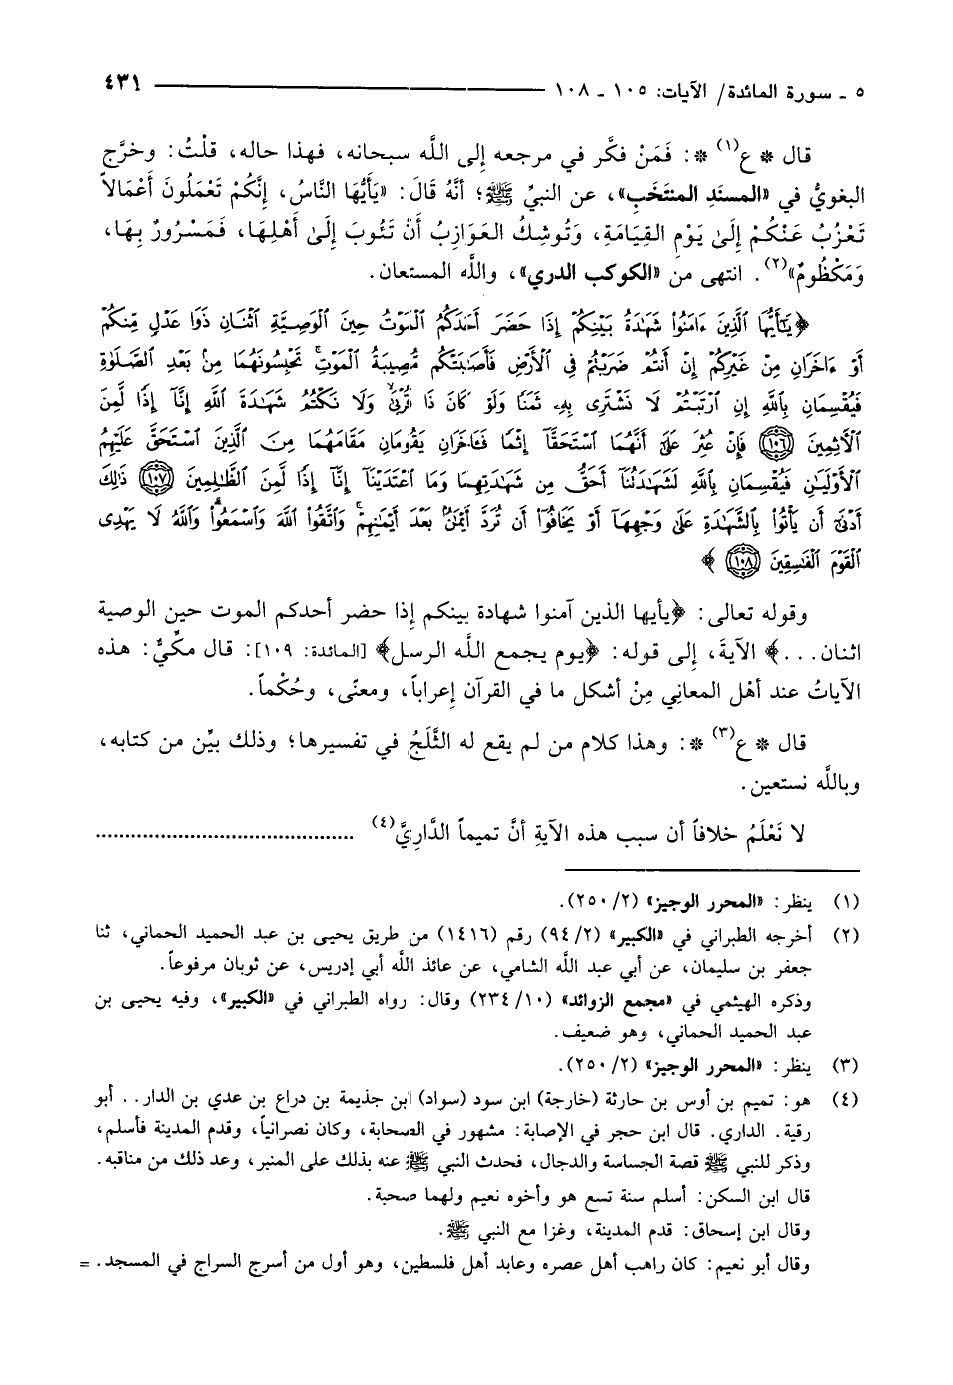 ٥ - سورة المائدة/ الآيات: ١٠٥ - ١٠٨ ٤٣١
قال * ع(١) *: فَمَنْ فكَّر في مرجعه إلى اللَّه سبحانه، فهذا حاله، قلْتُ: وخرَّج
البغويُّ في «المسنَدِ المنتَخَبِ»، عن النبيِّ ﷺ؛ أنَّهُ قَالَ: «يَأَيُّهَا النَّاسُ، إِنَّكُمْ تَعْمَلُونَ أَعْمَالاً
تَعْزُبُ عَنْكُمْ إِلَىٰ يَوْمِ القِيَامَةِ، وَتُوشِكُ العَوَازِبُ أَنْ تَئُوبَ إِلَىٰ أَهْلِهَا، فَمَسْرُورٌ بِهَا،
وَمَكْظُومٌ»(٢). انتهى من «الكوكب الدري»، واللَّه المستعان.
﴿يَٰٓأَيُّهَا ٱلَّذِينَ ءَامَنُوا۟ شَهَٰدَةُ بَيْنِكُمْ إِذَا حَضَرَ أَحَدَكُمُ ٱلْمَوْتُ حِينَ ٱلْوَصِيَّةِ ٱثْنَانِ ذَوَا عَدْلٍ مِّنكُمْ
أَوْ ءَاخَرَانِ مِنْ غَيْرِكُمْ إِنْ أَنتُمْ ضَرَبْتُمْ فِى ٱلْأَرْضِ فَأَصَٰبَتْكُم مُّصِيبَةُ ٱلْمَوْتِ ۚ تَحْبِسُونَهُمَا مِنۢ بَعْدِ ٱلصَّلَوٰةِ
فَيُقْسِمَانِ بِٱللَّهِ إِنِ ٱرْتَبْتُمْ لَا نَشْتَرِى بِهِۦ ثَمَنًا وَلَوْ كَانَ ذَا قُرْبَىٰ ۙ وَلَا نَكْتُمُ شَهَٰدَةَ ٱللَّهِ إِنَّآ إِذًا لَّمِنَ
ٱلْءَاثِمِينَ ١٠٦ فَإِنْ عُثِرَ عَلَىٰٓ أَنَّهُمَا ٱسْتَحَقَّآ إِثْمًا فَـَٔاخَرَانِ يَقُومَانِ مَقَامَهُمَا مِنَ ٱلَّذِينَ ٱسْتَحَقَّ عَلَيْهِمُ
ٱلْأَوْلَيَٰنِ فَيُقْسِمَانِ بِٱللَّهِ لَشَهَٰدَتُنَآ أَحَقُّ مِن شَهَٰدَتِهِمَا وَمَا ٱعْتَدَيْنَآ إِنَّآ إِذًا لَّمِنَ ٱلظَّٰلِمِينَ ١٠٧ ذَٰلِكَ
أَدْنَىٰٓ أَن يَأْتُوا۟ بِٱلشَّهَٰدَةِ عَلَىٰ وَجْهِهَآ أَوْ يَخَافُوٓا۟ أَن تُرَدَّ أَيْمَٰنٌۢ بَعْدَ أَيْمَٰنِهِمْ ۗ وَٱتَّقُوا۟ ٱللَّهَ وَٱسْمَعُوا۟ ۗ وَٱللَّهُ لَا يَهْدِى
ٱلْقَوْمَ ٱلْفَٰسِقِينَ ١٠٨﴾
وقوله تعالى: ﴿يأيها الذين آمنوا شهادة بينكم إذا حضر أحدكم الموت حين الوصية
اثنان...﴾ الآيةَ، إلى قوله: ﴿يوم يجمع اللَّه الرسل﴾ [المائدة: ١٠٩]: قال مكِّيٌّ: هذه
الآياتُ عند أهْل المعانِي مِنْ أشكل ما في القرآن إعراباً، ومعنًى، وحُكْماً.
قال * ع(٣) *: وهذا كلام من لم يقع له الثَّلَجُ في تفسيرها؛ وذلك بيِّن من كتابه،
وباللَّه نستعين.
لا نَعْلَمُ خلافاً أن سبب هذه الآيةِ أنَّ تميماً الدَّارِيَّ(٤) ............................................
(١) ينظر: «المحرر الوجيز» (٢/ ٢٥٠).
(٢) أخرجه الطبراني في «الكبير» (٢/ ٩٤) رقم (١٤١٦) من طريق يحيى بن عبد الحميد الحماني، ثنا
جعفر بن سليمان، عن أبي عبد اللَّه الشامي، عن عائذ اللَّه أبي إدريس، عن ثوبان مرفوعاً.
وذكره الهيثمي في «مجمع الزوائد» (١٠/ ٢٣٤) وقال: رواه الطبراني في «الكبير»، وفيه يحيى بن
عبد الحميد الحماني، وهو ضعيف.
(٣) ينظر: «المحرر الوجيز» (٢/ ٢٥٠).
(٤) هو: تميم بن أوس بن حارثة (خارجة) ابن سود (سواد) ابن جذيمة بن دراع بن عدي بن الدار.. أبو
رقية. الداري. قال ابن حجر في الإصابة: مشهور في الصحابة، وكان نصرانياً، وقدم المدينة فأسلم،
وذكر للنبي ﷺ قصة الجساسة والدجال، فحدث النبي ﷺ عنه بذلك على المنبر، وعد ذلك من مناقبه.
قال ابن السكن: أسلم سنة تسع هو وأخوه نعيم ولهما صحبة.
وقال ابن إسحاق: قدم المدينة، وغزا مع النبي ﷺ.
وقال أبو نعيم: كان راهب أهل عصره وعابد أهل فلسطين، وهو أول من أسرج السراج في المسجد. =